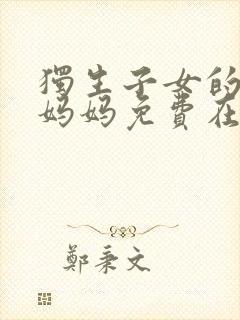 獨生子女的
妈妈免費在
鄭秉文